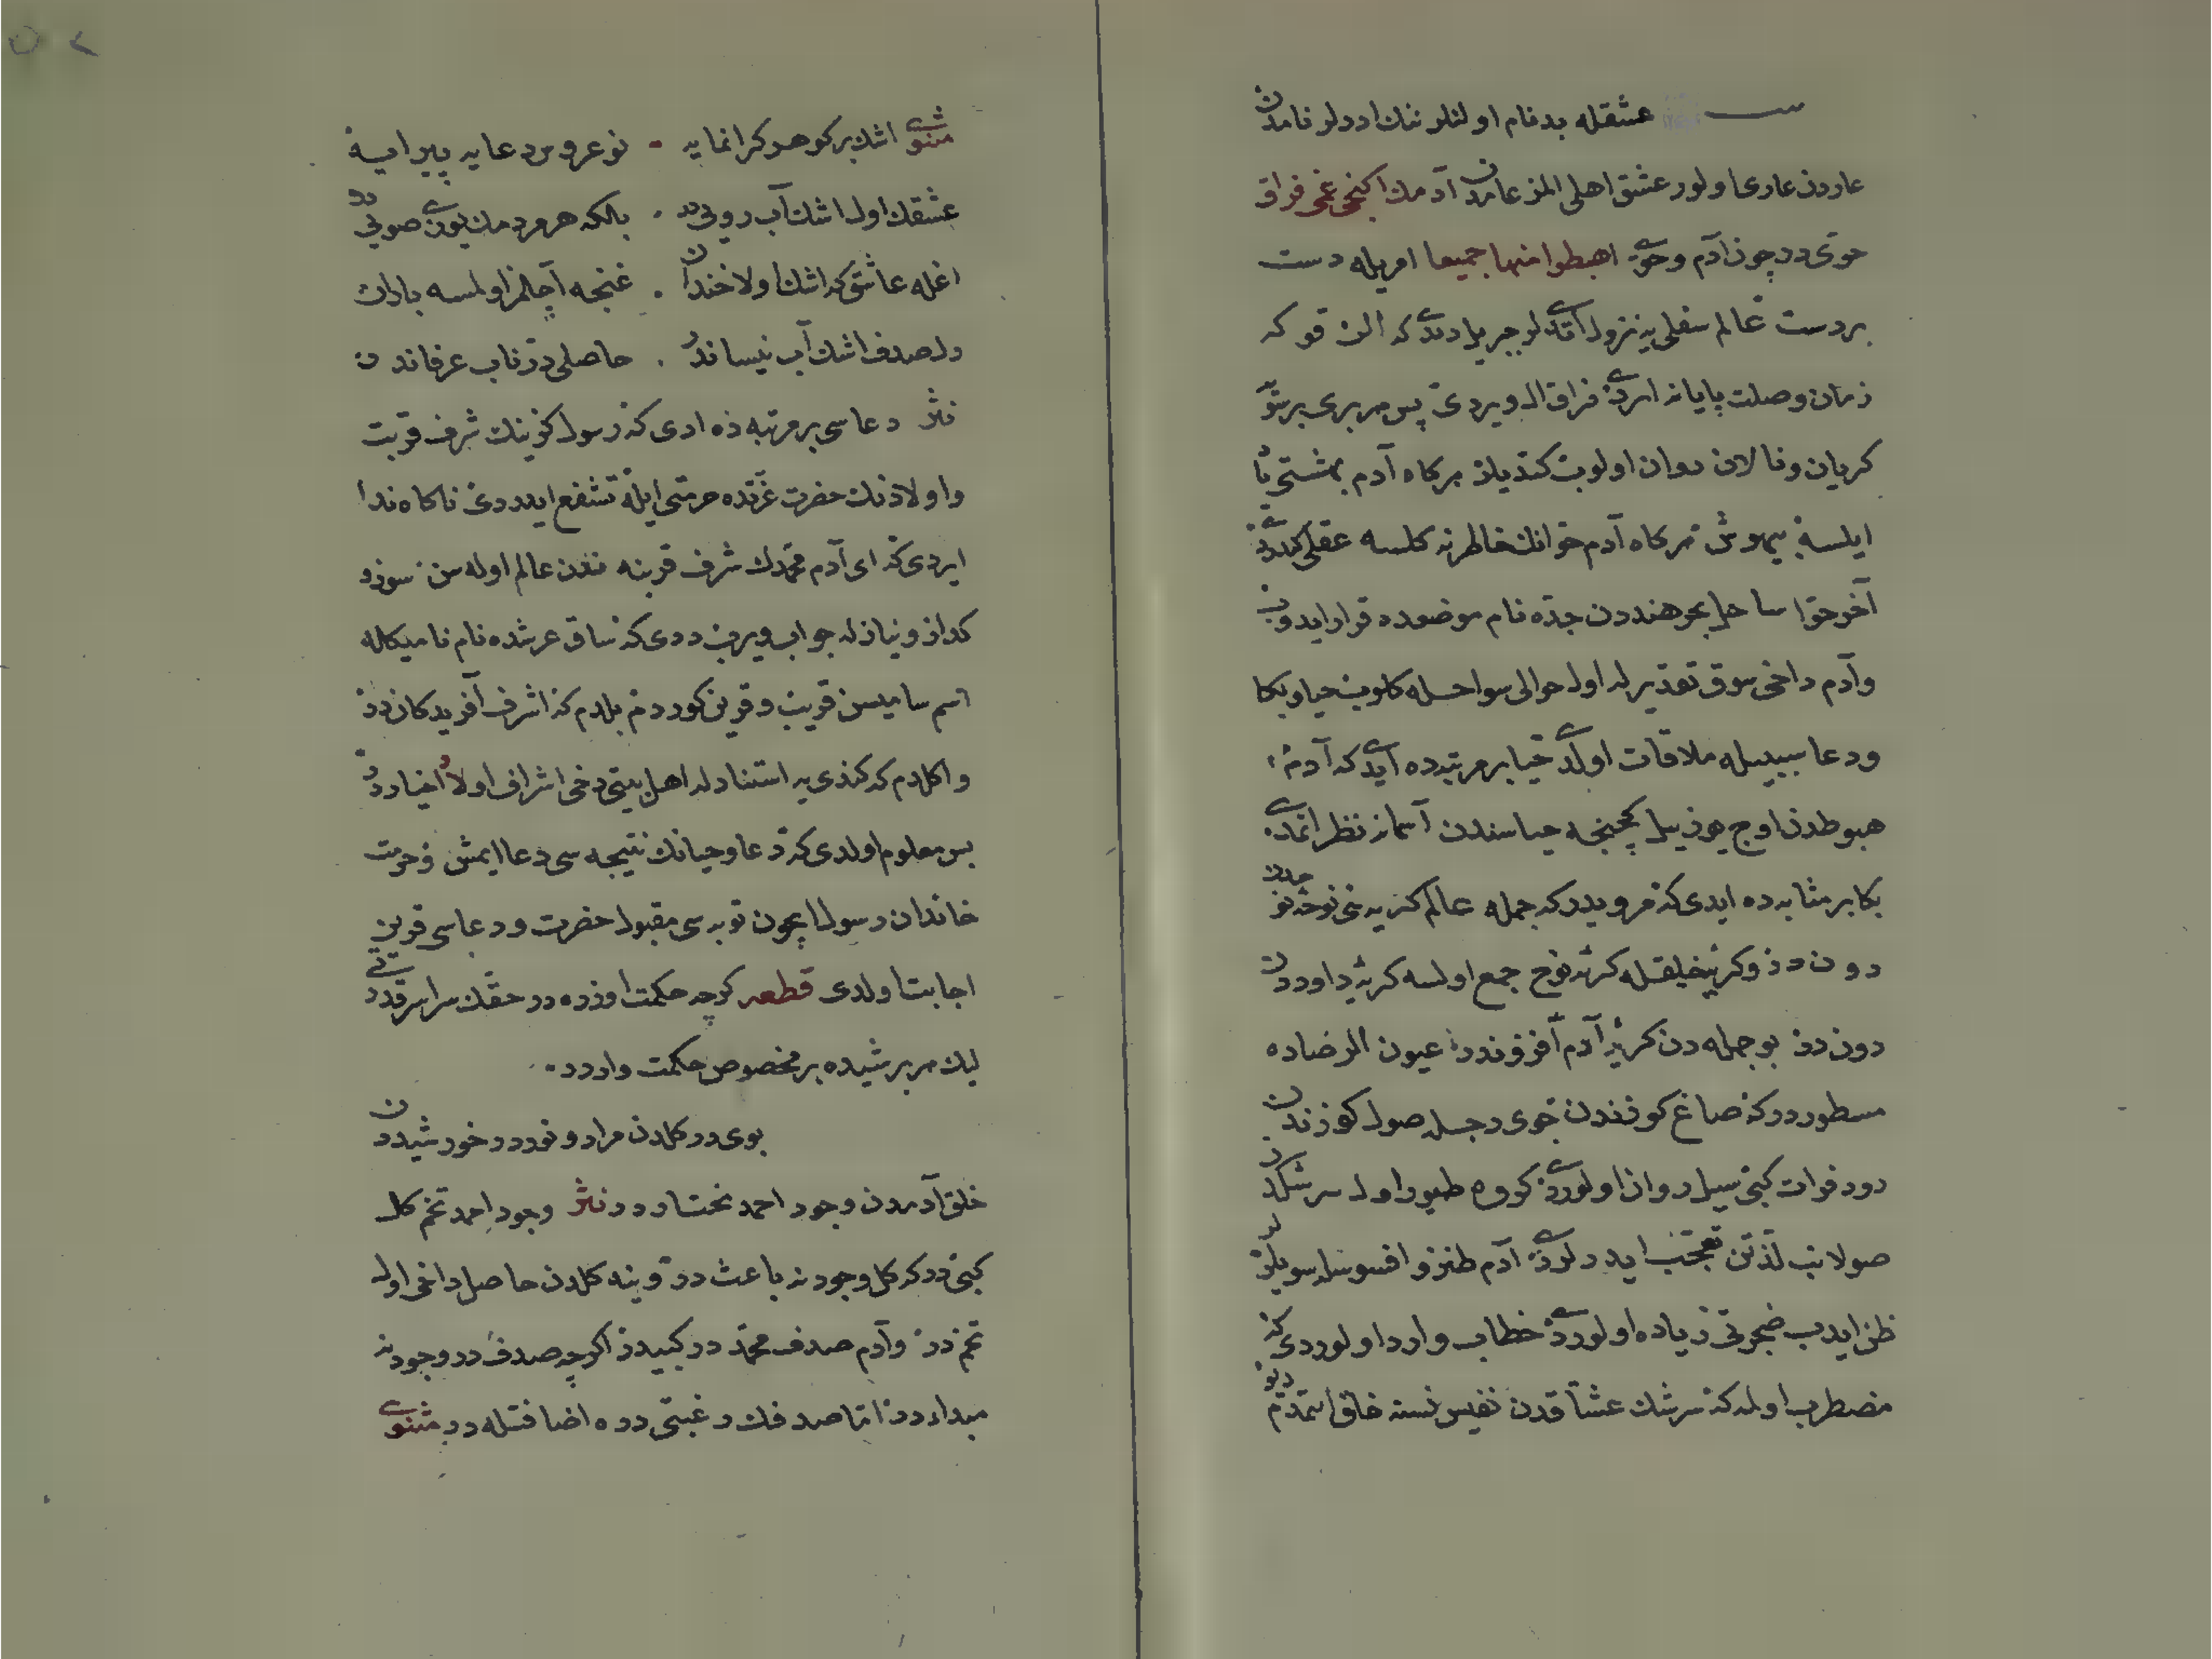 عشقله بدنام اولنلر ننك ايدرلر نامدن
عاردن عارى اولور عشق اهلى المز عامدن آدمك ايكنجى غمى فراق
حوى در چون آدم و حوى اهبطوا منها جميعا امريله دست
بر دست عالم سفلى يه نزول اتديلر جبريل ديدى كه الن قو كه
زمان وصلت پايانه اردى فراق ال ويردى پس هر برى بر سو
كريان ونالان روان اولوب كتديلر هركاه آدم بهشتى ياد
ايلسه بيهوش هركاه آدم حوانك خاطرنه كلسه عقلى كيدردى
آخر حوا ساحل بحر هنددن جده نام موضعده قرار ايدوب
وآدم داخى سوق تقديرله اول حوالى سواحله كلوب حيا وبكا
ودعا سببيله ملاقات اولدى حيا بر مرتبه ده ايدى كه آدم
هبوطدن اوج يوز ييل كچينجه حياسندن آسمانه نظر اتمدى
بكا بر مثابه ده ايدى كه مرويدر كه جمله عالم كريه سى نوحه نوحدن
دوندر وكريه خليقله كريه نوح جمع اولسه كريه داوددن
دوندر بو جمله دن كريه آدم افزوندر عيون الرضاده
مسطوردر كه صاغ كوزندن جوى دجله صول كوزندن
رود فرات كبى سيل روان اولوردى كروه طيور اول سرشكدن
صولانب لذتن تعجب ايدرلردى آدم طنز وافسوسله سويلرلر
ظن ايدب ضجرتى زياده اولوردى خطاب وارد اولوردى كه
مضطرب اولمه كه سرشك عشاقدن نفيس نسنه خلق اتمدم
مثنوى اشك بر كوهر كرانمايه نوعروس دعايه پيرايه
عشقك اول اشك آب رويى در بلكه هر مردمك يوزى صويى در
اغله عاشق كه اشك اولا خندان غنجه آچلمز اولمسه باران
دل صدف اشك آب نيساندر حاصلى در ناب عرفاندر
نثر دعاسى بر مرتبه ده ادى كه رسول كزينك شرف قربت
واولادنك حضرت عزتده حرمتى ايله تشفع ايدردى ناكاه ندا
ايردى كه اى آدم محمدك شرف قربنه نه‌دن عالم اوله سن سوز و
كداز ونيازله جواب ويرب ددى كه ساق عرشده نام ناميكله
اسم ساميسن قريب وقرين كوردم بلدم كه اشرف آفريدكاندر
واكلدم كه كندى يه استنادله اهل بيتى دخى اشراف اولاد اخياردر
پس معلوم اولدى كه دعا وحيانك نتيجه سى دعا ايمش وحرمت
خاندان رسول ايچون توبه سى مقبول حضرت ودعاسى قرين
اجابت اولدى قطعه كرچه حكمت اوزره در حقك سراسر قدرتى
ليك هر بر شيده بر مخصوص حكمت واردر
بوى در كلدن مراد ونوردر خورشيددن
خلق آدمدن وجود احمد مختاردر نثر وجود احمد تخم كل
كبى در كه كل وجودنه باعث در وينه كلدن حاصل داخى اول
تخم در وآدم صدف محمد در كبيدر اكرچه صدف در وجودنه
مبداءدر اما صدفك رغبتى دره اضافتله در مثنوى